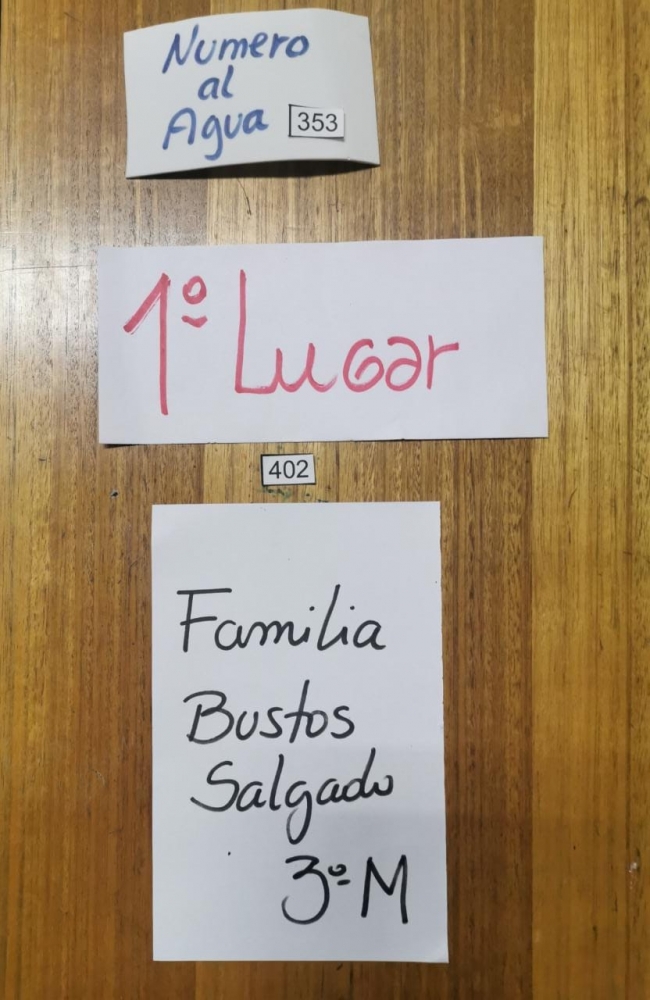 Numero
al
Agua 353
1º Lugar
402
Familia
Bustos
Salgado
3º M